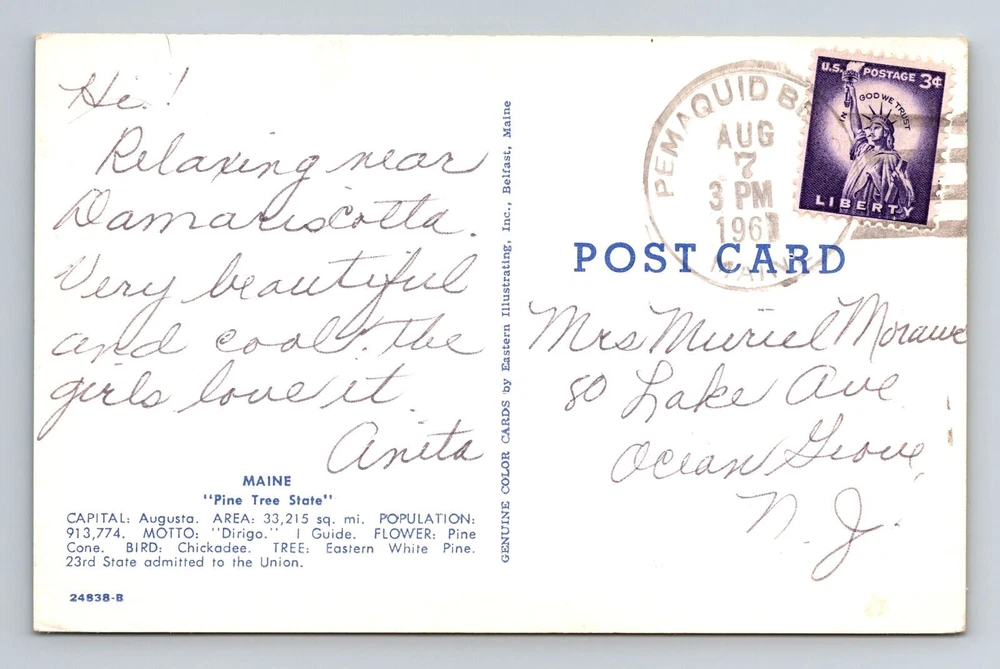 Hi!
Relaxing near
Damariscotta.
Very beautiful
and cool. The
girls love it.
Anita
MAINE
"Pine Tree State"
CAPITAL: Augusta. AREA: 33,215 sq. mi. POPULATION:
913,774. MOTTO: "Dirigo." I Guide. FLOWER: Pine
Cone. BIRD: Chickadee. TREE: Eastern White Pine.
23rd State admitted to the Union.
24838-B
GENUINE COLOR CARDS by Eastern Illustrating, Inc., Belfast, Maine
PEMAQUID
AUG
7
3 PM
1961
MAINE
U.S. POSTAGE 3¢
IN GOD WE TRUST
LIBERTY
POST CARD
Mrs Muriel
80 Lake Ave
Ocean Grove,
N. J.